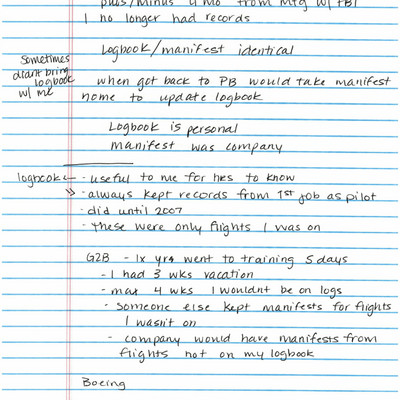 plus/minus 4 mo from mtg w/ FBI
I no longer had records
Logbook/manifest identical
Sometimes
didn't bring
logbook
w/ me
when got back to PB would take manifest
home to update logbook
Logbook is personal
manifest was company
logbook ← - useful to me for hrs to know
- always kept records from 1st job as pilot
- did until 2007
- these were only flights I was on
G2B - 1x yr went to training 5 days
- I had 3 wks vacation
- max 4 wks I wouldnt be on logs
- someone else kept manifests for flights
I wasn't on
- company would have manifests from
flights not on my logbook
Boeing